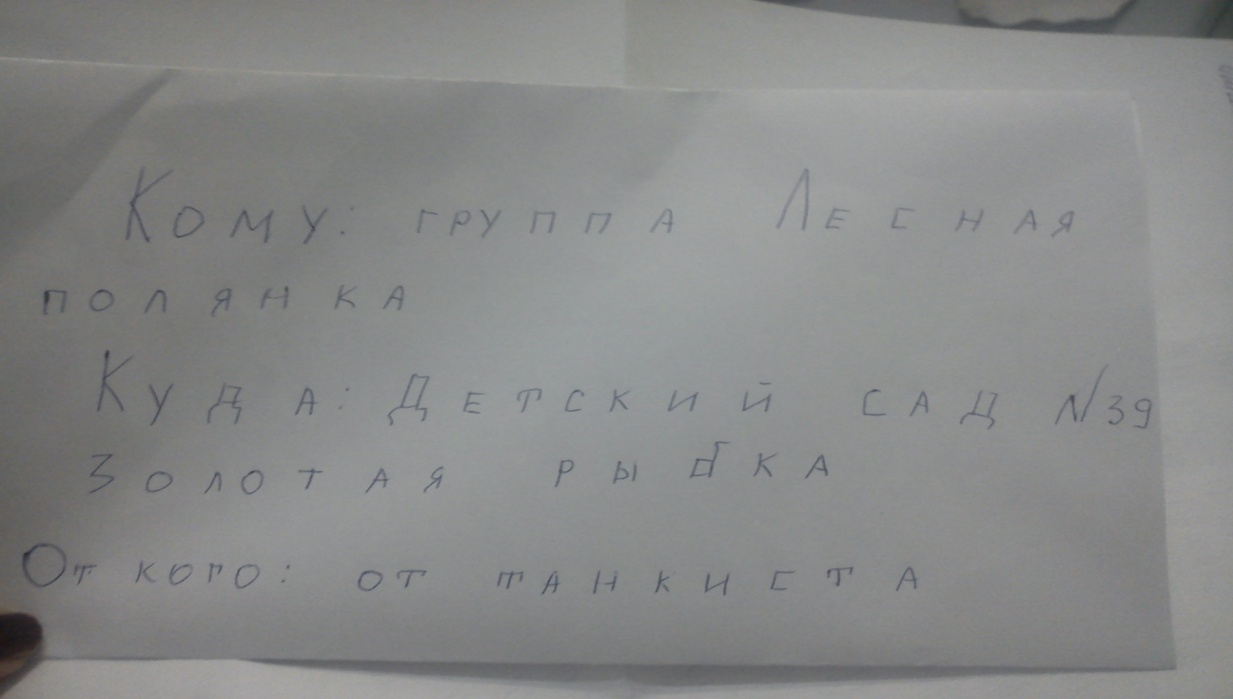 Кому: группа Лесная
полянка
Куда: Детский сад №39
Золотая рыбка
От кого: от танкиста